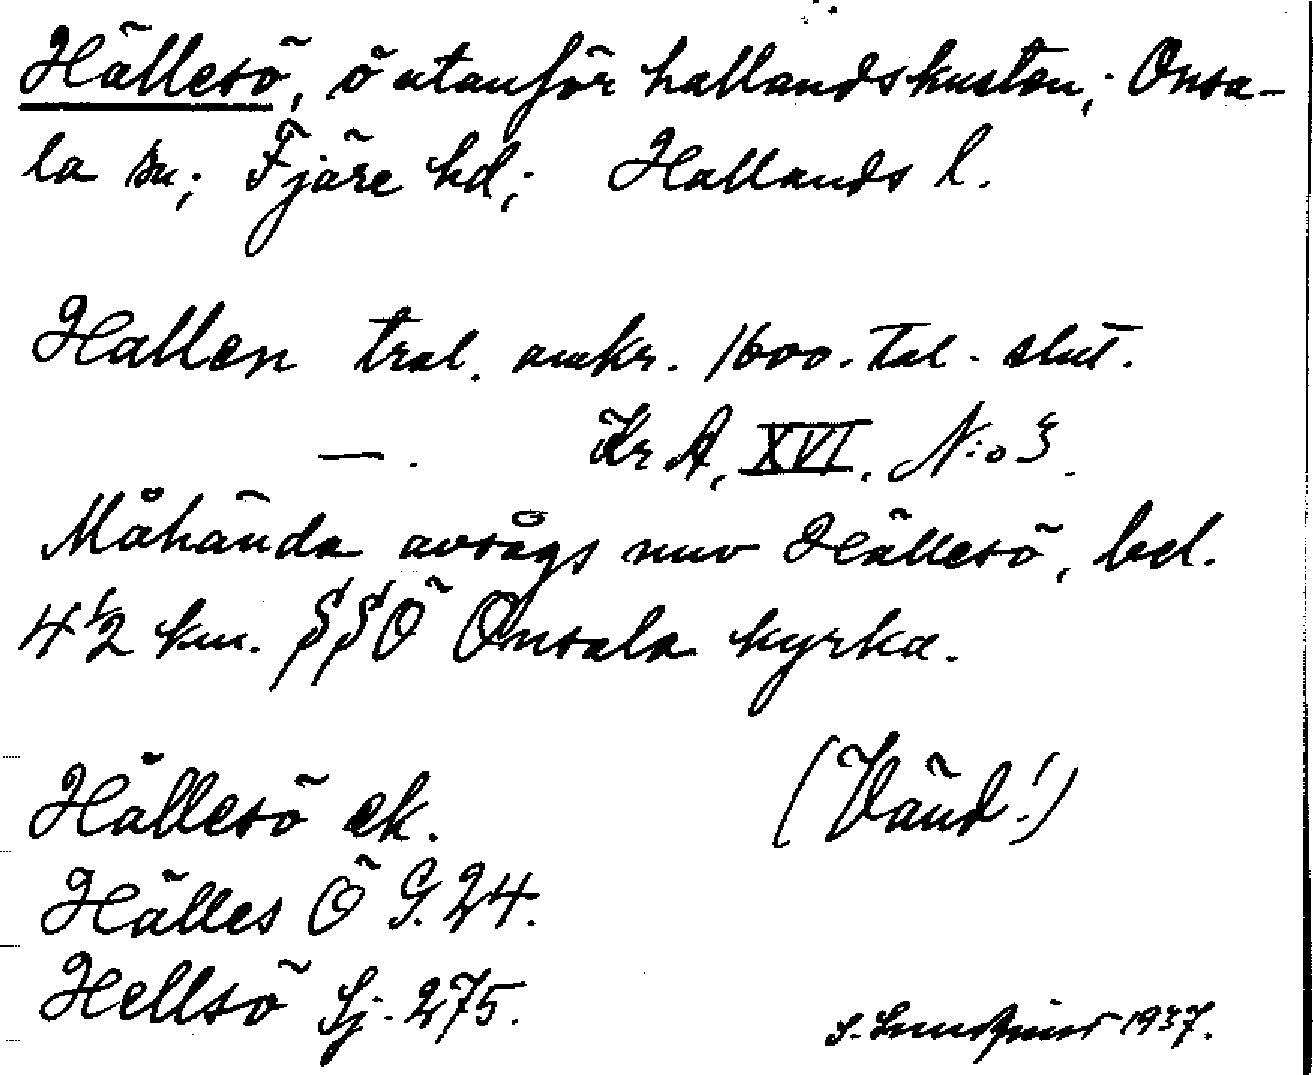 Hällesö, ö utanför hallandskusten; Onsa-
la sn; Fjäre hd; Hallands l.
Hallen tral. omkr. 1600-tal-slut.
— . Kr A, XVI, N:o 3.
Måhända avságs nuv Hällesö, bel.
4 1/2 km. SSÖ Onsala kyrka.
Hällesö ek. (Vänd!)
Hälles Ö G. 24.
Hellsö Sj. 275.
1937.